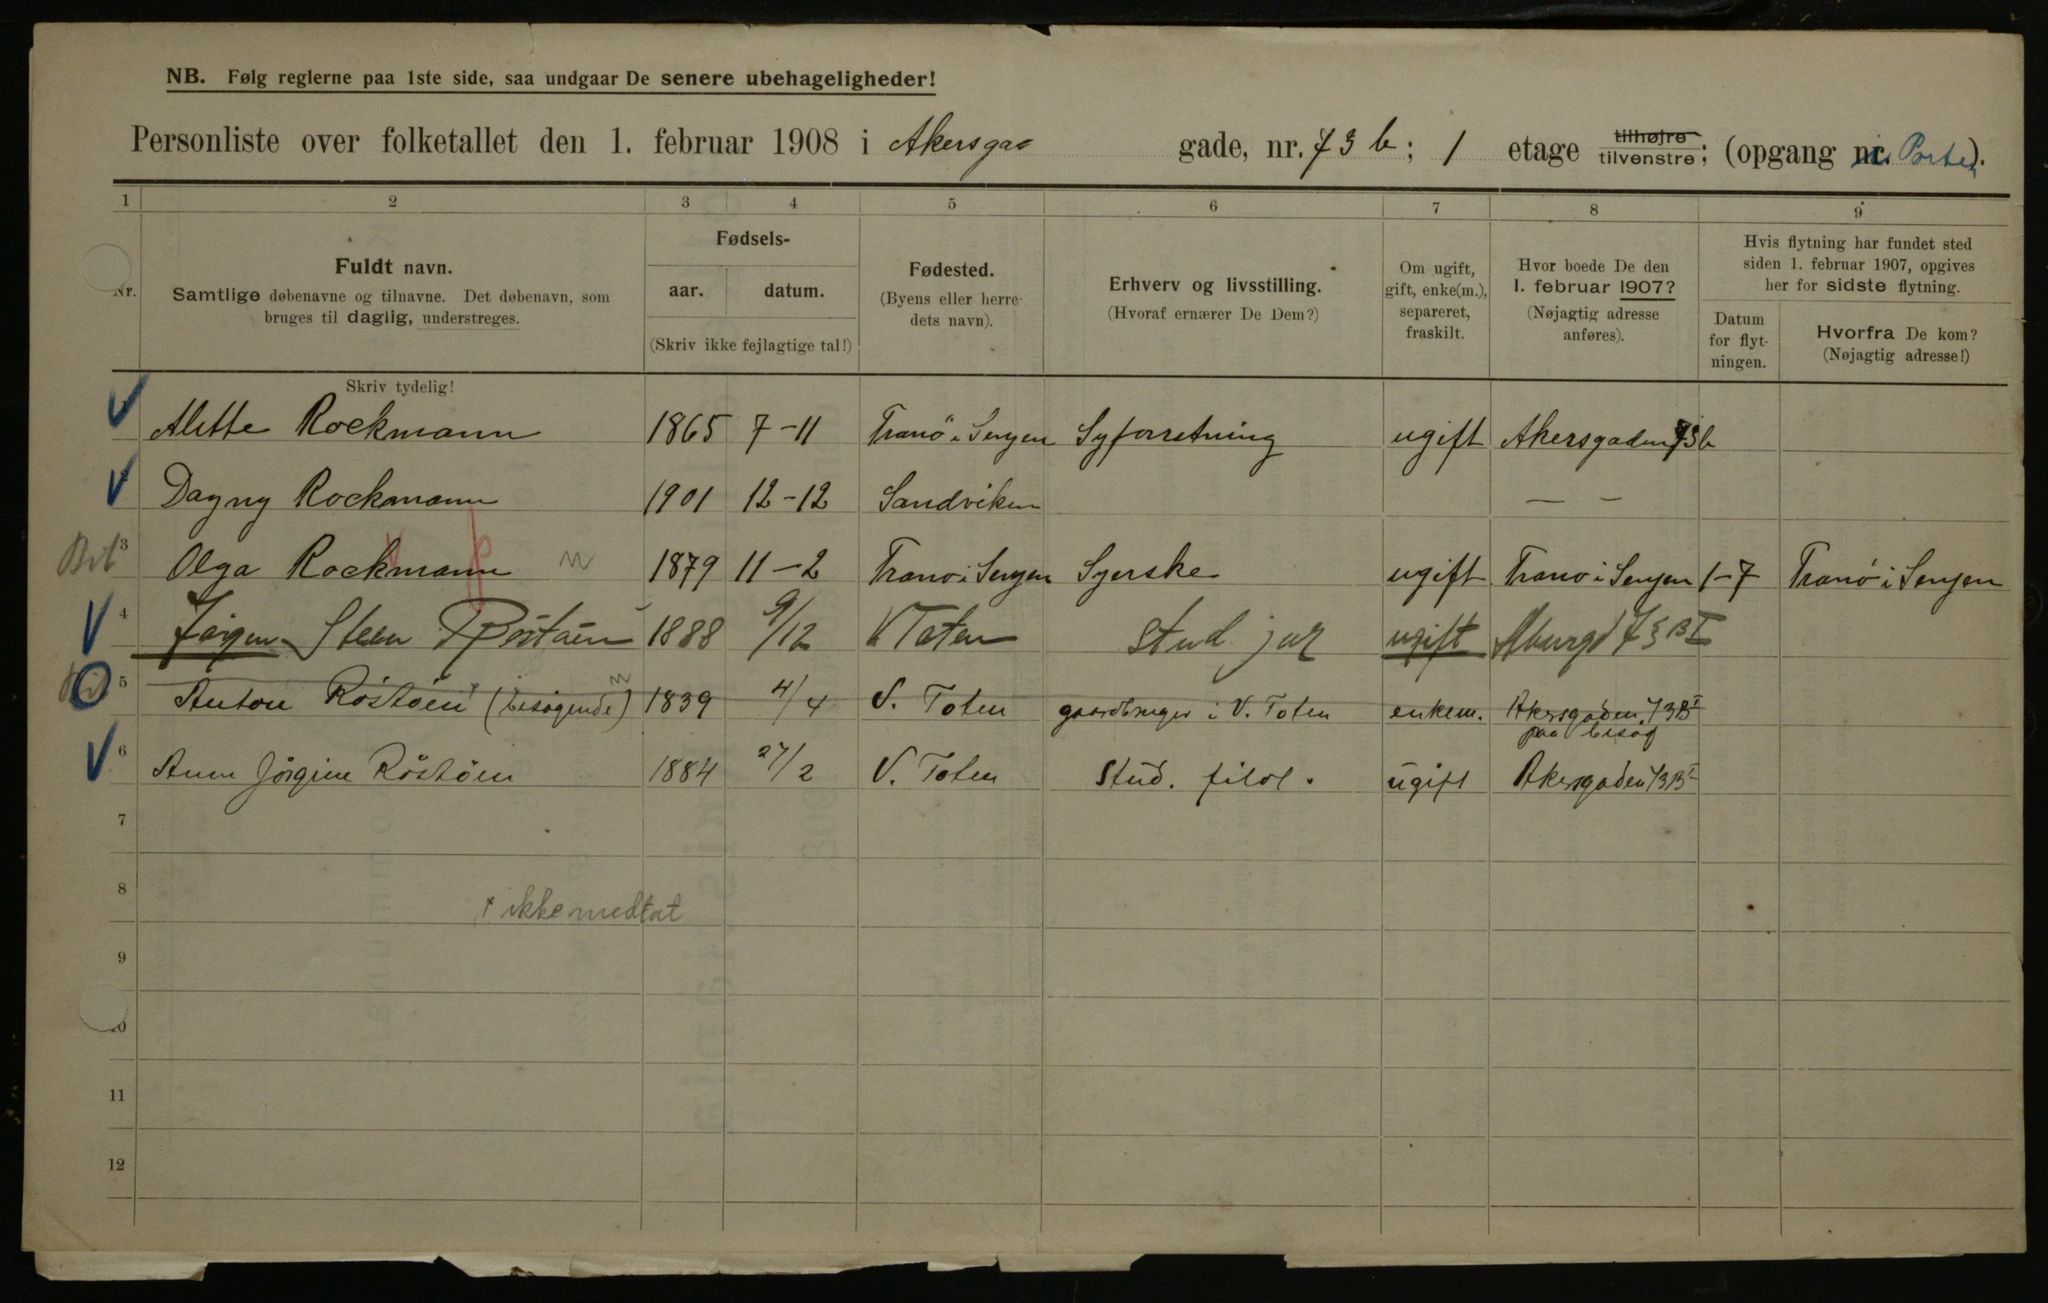 NB. Følg reglerne paa 1ste side, saa undgaar De senere ubehageligheder!
Personliste over folketallet den 1. februar 1908 i Akersgao gade, nr. 73 b; 1 etage tilhøjre tilvenstre; (opgang nr. Porten).
1 2 3 4 5 6 7 8 9
Nr.
Fuldt navn.
Samtlige døbenavne og tilnavne. Det døbenavn, som
bruges til daglig, understreges.
Skriv tydelig!
Fødsels-
aar. datum.
(Skriv ikke fejlagtige tal!)
Fødested.
(Byens eller herre-
dets navn).
Erhverv og livsstilling.
(Hvoraf ernærer De Dem?)
Om ugift,
gift, enke(m.),
separeret,
fraskilt.
Hvor boede De den
1. februar 1907?
(Nøjagtig adresse
anføres).
Hvis flytning har fundet sted
siden 1. februar 1907, opgives
her for sidste flytning.
Datum
for flyt-
ningen.
Hvorfra De kom?
(Nøjagtig adresse!)
Alette Rockmann 1865 7-11 Tranö i Senjen Syforretning ugift Akersgaden 73b
Dagny Rockmann 1901 12-12 Sandviken — —
3 Olga Rockmann 1879 11-2 Trano i Senjen Syerske ugift Trano i Senjen 1-7 Tranö i Senjen
4 Jörgen Steen Röstöen 1888 9/12 V Toten stud jur ugift 73 B I
5 Anton Röstöen (besøgende) 1839 4/4 V. Toten gaardbruger i V. Toten enkem. Akersgaden 73B I
paa besøg
6 Anne Jörgine Röstöen 1884 27/2 V. Toten stud. filol. ugift Akersgaden 73B I
7
8
+ ikke medtat
9
10
11
12